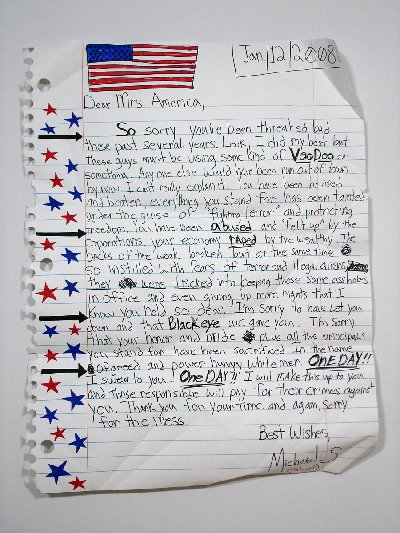 Jan/12/2008
Dear Mrs. America,
So sorry you've been threated bad
these past several years. Look, I did my best but
these guys must be using some kind of VooDoo or
something. Any one else would have been run out of town
by now. I can't really explain it. You have been abused
and beaten, everything you stand for has been tainted
under the guise of "fighting terror" and protecting
freedom. You have been abused and "felt up" by the
corporations your economy raped by the wealthy. The
of the weak broken but at the same time
so instilled with fears of terror and illegal aliens
they were tricked into keeping those same assholes
in office and even giving up more rights that I
know you hold so dear. I'm sorry to have let you
down and that Black eye we gave you. I'm sorry
that your honor and pride plus all the principals
you stand for have been sacrificed in the name
of greed and power hungry white men. ONE DAY!!
I swear to you! ONE DAY!! I will make this up to you
and those responsible will pay for their crimes against
you. Thank you for your time and again, sorry
for the mess.
Best Wishes,
Michael S